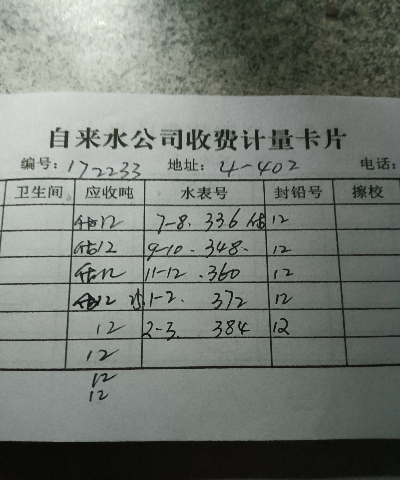 自来水公司收费计量卡片
编号: 172233 地址: 4-402 电话:
卫生间 应收吨 水表号 封铅号 擦校
估12 7-8. 336 估 12
估12 9-10. 348. 12
估12 11-12 .360 12
估12 1-2. 372 12
12 2-3. 384 12
12
12
12